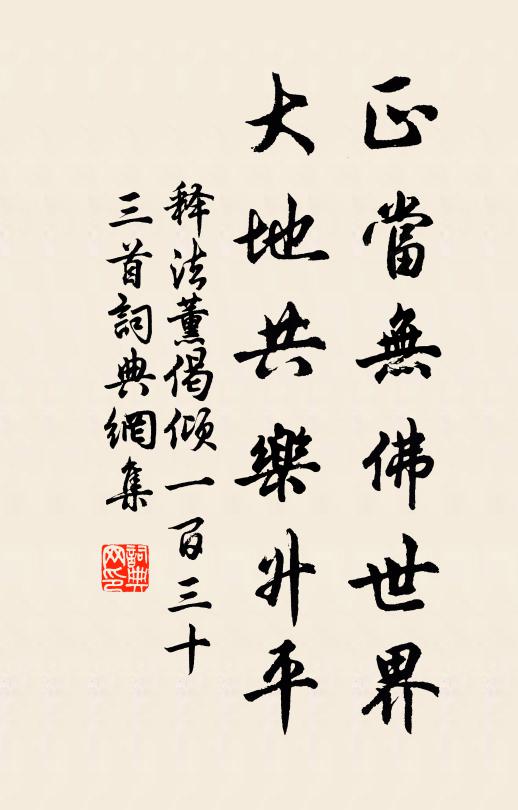 正當無佛世界
大地共樂升平
释法薰偈傾一百三十
三首詞典網集
詞典网印